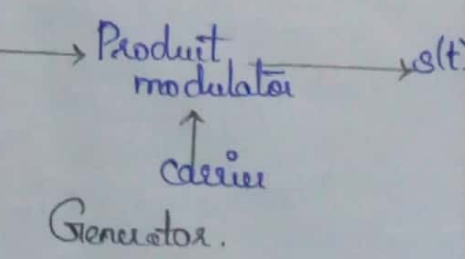 Product s(t)
modulator
carrier
Generator.